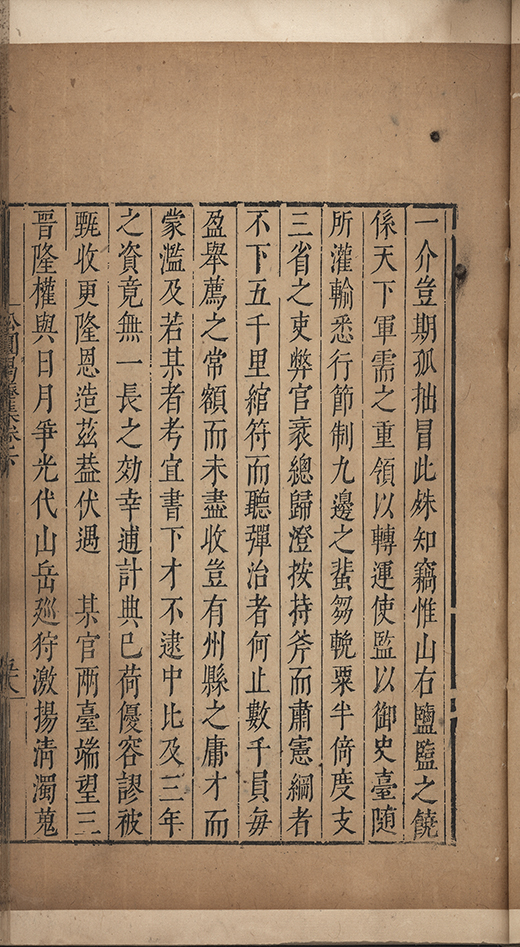 一介豈期孤拙冒此殊知竊惟山右鹽䀋之饒
係天下軍需之重領以轉運使監以御史臺随
所灌輸悉行節制九邊之蜚芻輓粟半倚度支
三省之吏弊官衺總歸澄按持斧而肅憲綱者
不下五千里綰符而聽彈治者何止數千員每
盈舉薦之常額而未盡收豈有州縣之庸才而
蒙濫及若某者考宜書下才不逮中比及三年
之資竟無一長之効幸逋計典已荷優容謬被
甄收更隆恩造茲葢伏遇　某官兩臺端望三
晉隆權與日月爭光代山岳廵狩激揚清濁蒐
集卷六